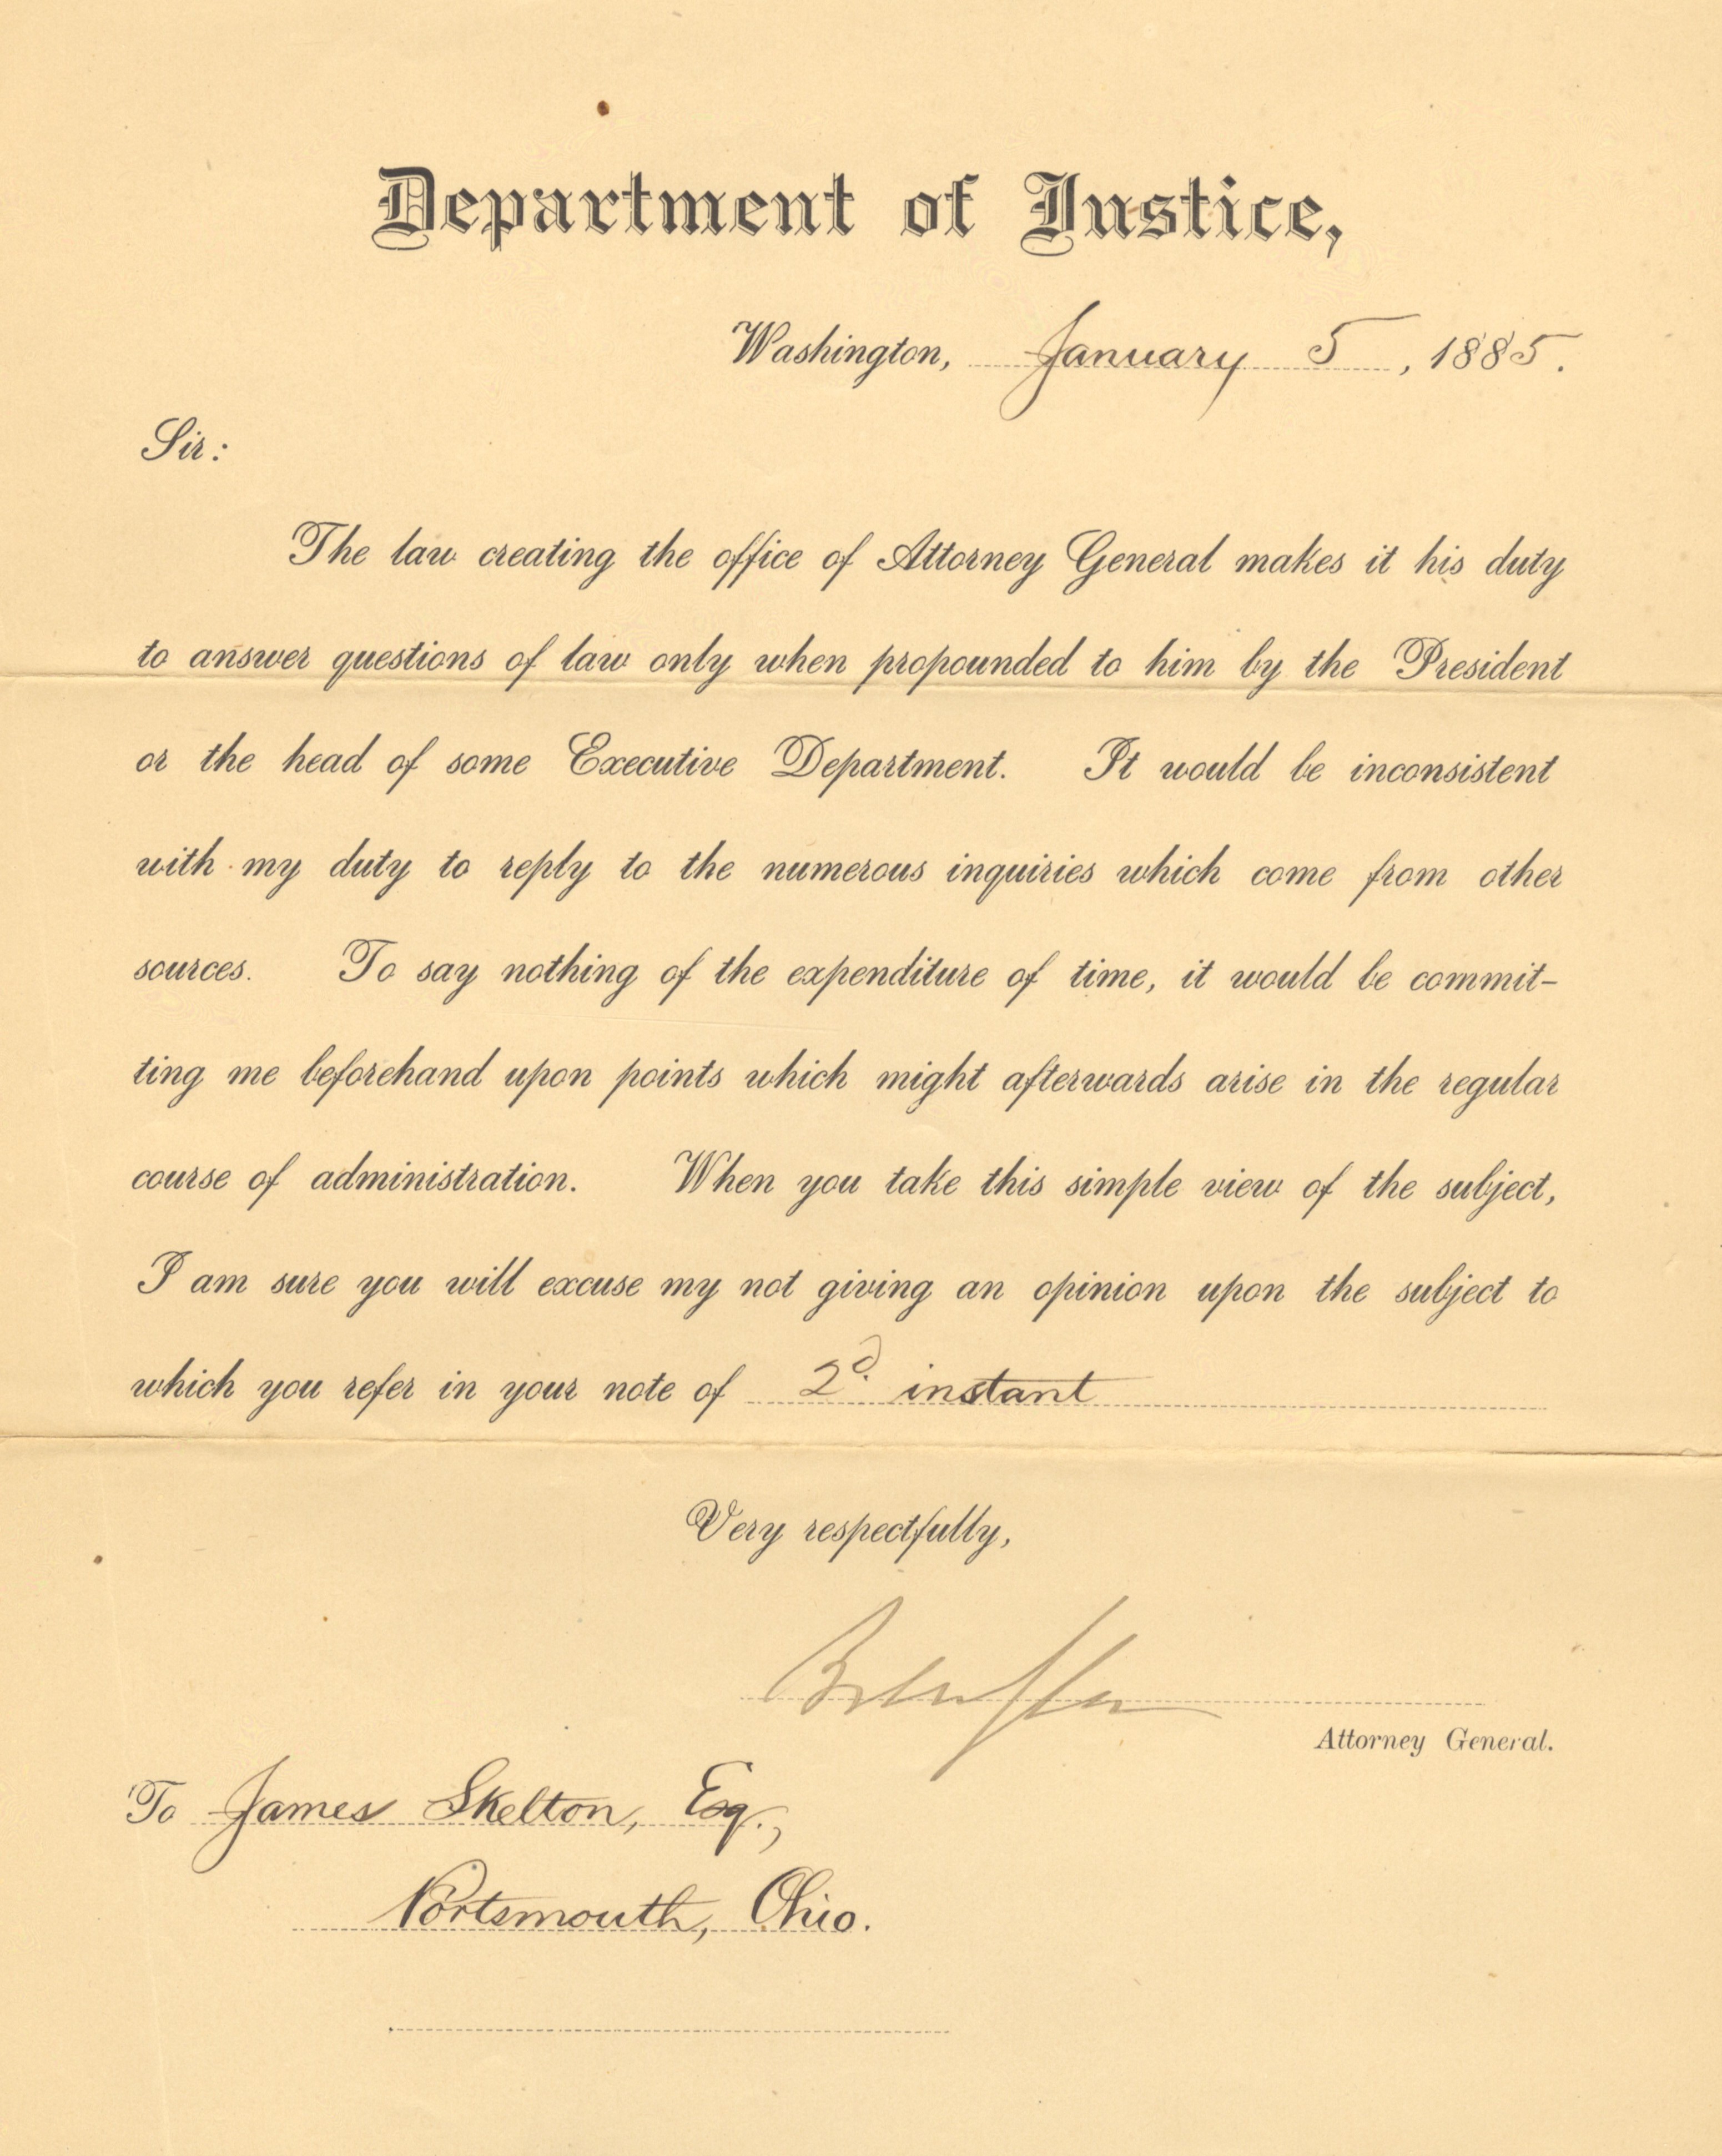 Department of Justice,
Washington, January 5, 1885.
Sir:
The law creating the office of Attorney General makes it his duty
to answer questions of law only when propounded to him by the President
or the head of some Executive Department. It would be inconsistent
with my duty to reply to the numerous inquiries which come from other
sources. To say nothing of the expenditure of time, it would be commit-
ting me beforehand upon points which might afterwards arise in the regular
course of administration. When you take this simple view of the subject,
I am sure you will excuse my not giving an opinion upon the subject to
which you refer in your note of 2d. instant
Very respectfully,
Attorney General.
To James Skelton, Esq.,
Portsmouth, Ohio.